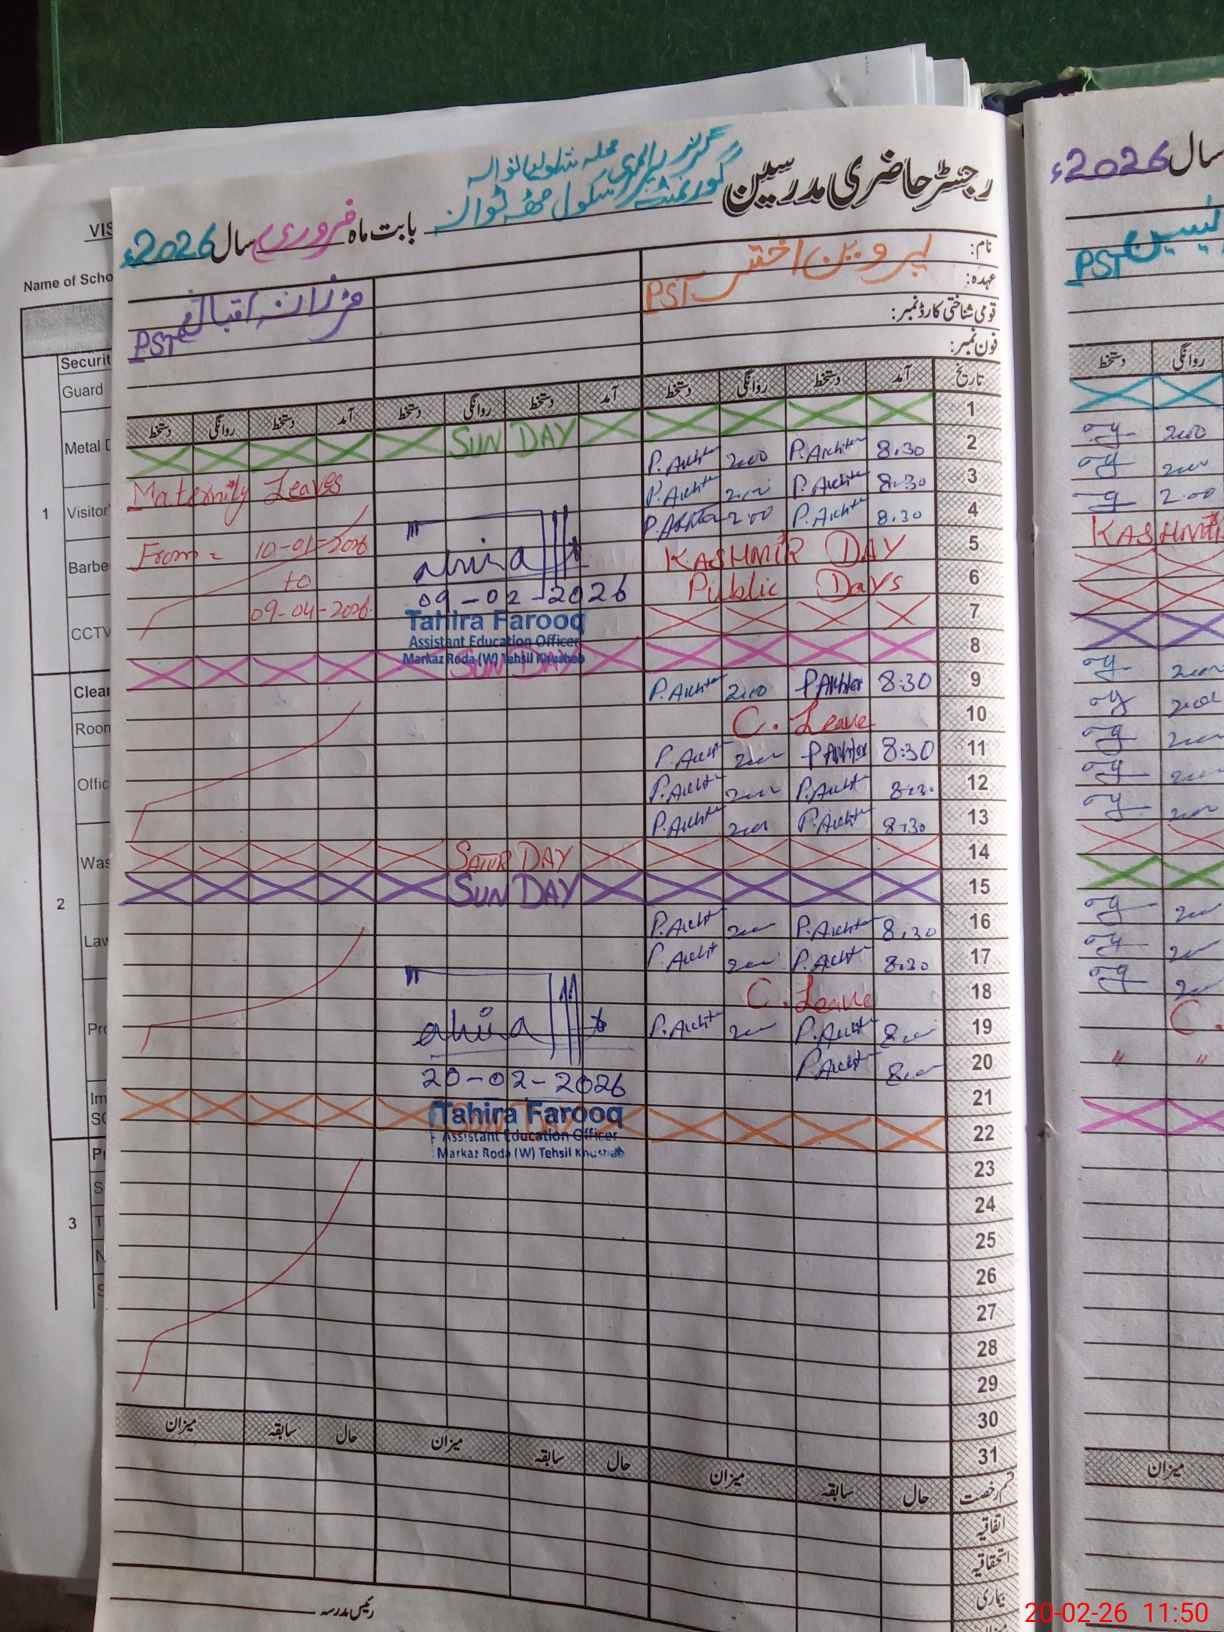 رجسٹر حاضری مدرسین گورنمنٹ گرلز پرائمری سکول مٹھہ ٹوانہ
محلہ
بابت ماہ فروری سال 2026ء
نام: پروین اختر
عہدہ: PST
قومی شناختی کارڈ نمبر:
فون نمبر:
فرزانہ اقبال
PST
تاریخ آمد دستخط روانگی دستخط آمد دستخط روانگی دستخط آمد دستخط روانگی دستخط
1 SUN DAY
2 8:30 P.Akhter 2:00 P.Akhter
Maternity Leaves
3 8:30 P.Akhter 2:00 P.Akhter
4 8:30 P.Akhter 2:00 P.Akhter
From = 10-01-2026
to
09-04-2026
5 KASHMIR DAY
6 Public Days
09-02-2026
Tahira Farooq
Assistant Education Officer
Markaz Roda (W) Tehsil Khushab
7
8 SUN DAY
9 8:30 P Akhter 2:00 P.Akhter
10 C. Leave
11 8:30 P Akhter 2:00 P.Akht
12 8:30 P.Akht 2:00 P.Akhter
13 8:30 P.Akhter 2:00 P.Akhter
14 SATUR DAY
15 SUN DAY
16 8:30 P.Akhter 2:00 P.Akht
17 8:30 P.Akht 2:00 P.Akht
18 C. Leave
19 8:00 P.Akht 2:00 P.Akht
20 8:00 P.Akht
20-02-2026
Tahira Farooq
Assistant Education Officer
Markaz Roda (W) Tehsil Khushab
21
22
23
24
25
26
27
28
29
30
31
قسم رخصت حال سابقہ میزان حال سابقہ میزان حال سابقہ میزان
اتفاقیہ
استحقاقیہ
بیماری
رئیس مدرسہ
سال 2026ء
PST
روانگی دستخط
2:00
2:00
2:00
KASHMIR
2:00
2:00
2:00
2:00
2:00
2:00
2:00
2:00
C.
" "
میزان
VIS
Name of Scho
Securit
Guard
Metal D
1 Visitor'
Barbe
CCTV
Clear
Room
Offic
Was
2
Law
Pro
Im
SC
Pr
S
3 T
N
S
20-02-26 11:50